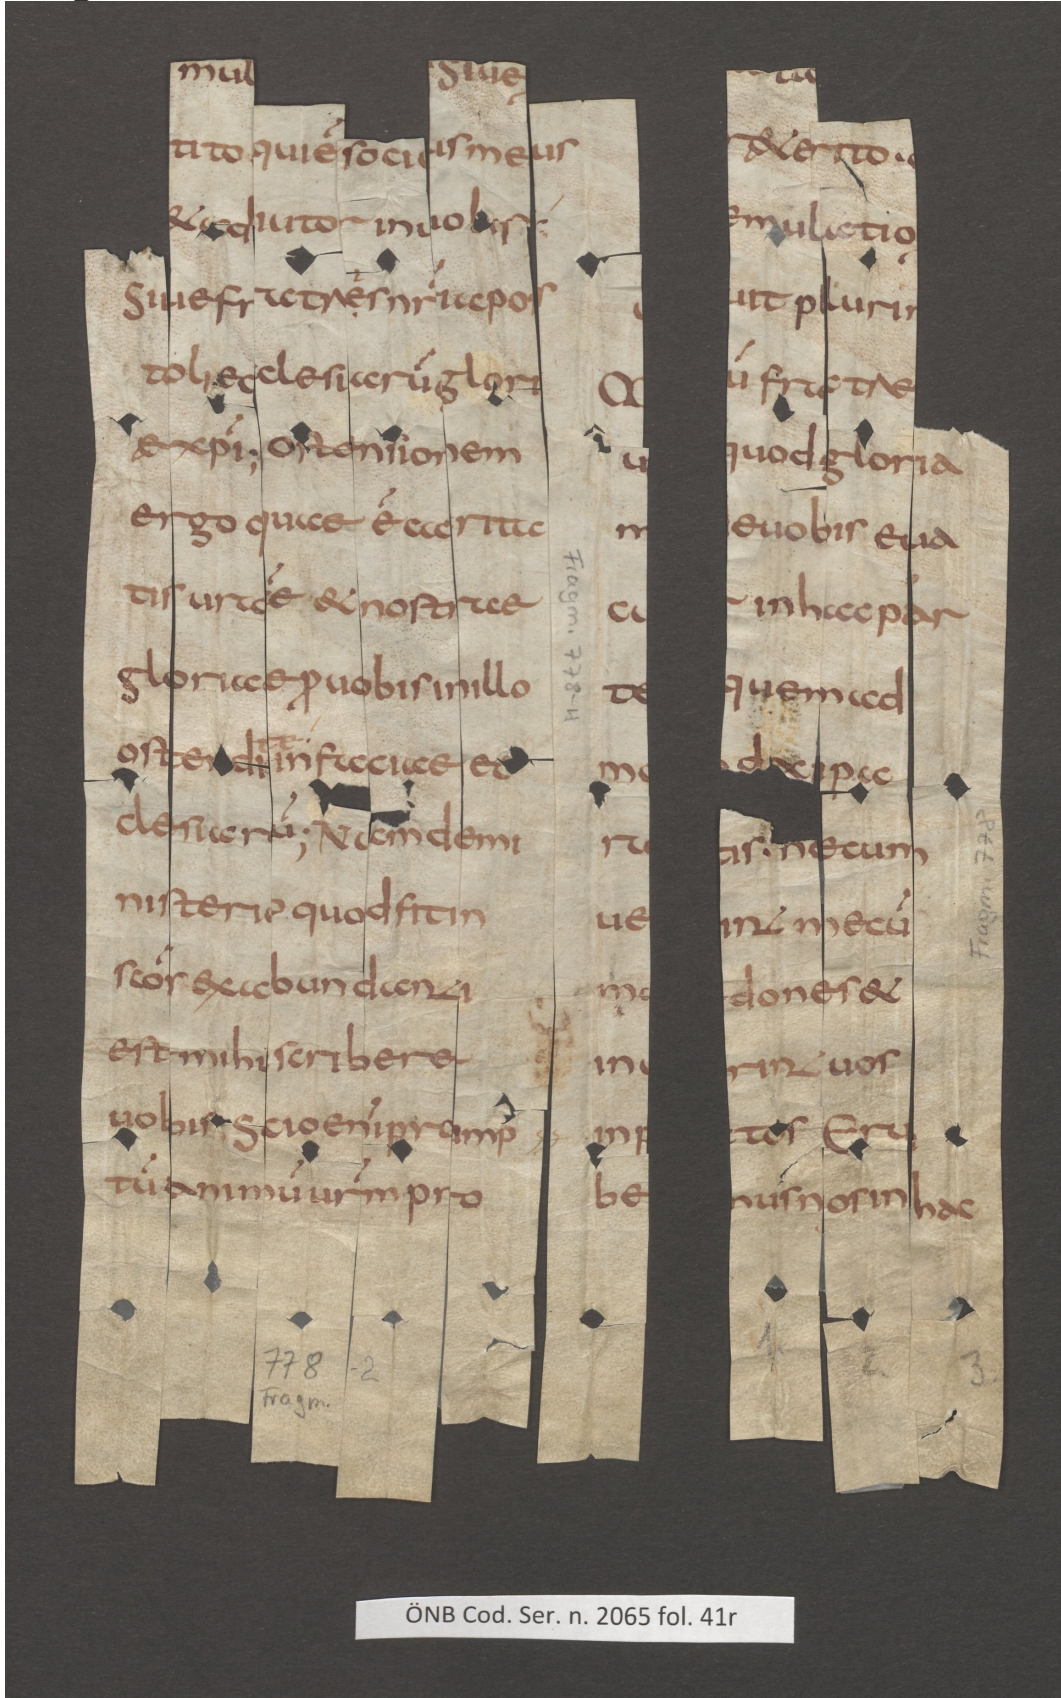 mul Siue
tito qui ē socius meus
& adiutor in uobis;
Siue fratres nr̄i apos
toli ecclesiarū glori
ae xp̄i; Ostensionem
ergo quae ē caerita
tis urāe & nostrae
gloriae p̄ uobis in illo
ostendite in faciae ec
clesiarū; Nam de mi
nisterio quod fit in
scōs ex abundanti
est mihi scribere
uobis; Scio enī promp
tū animū urm̄ pro
&erito
emulatio
uit plurim
ū fratre
quod gloria
m euobis eua
cu r in hac par
te quem ad
mo d
ra tis. ne cum
ue rint mecū
ma dones &
inu rint uos
inp atos Eru
be mus nos in hac
Fragm. 778-4
Fragm. 778
778-2
Fragm.
1.
2.
3.
ÖNB Cod. Ser. n. 2065 fol. 41r